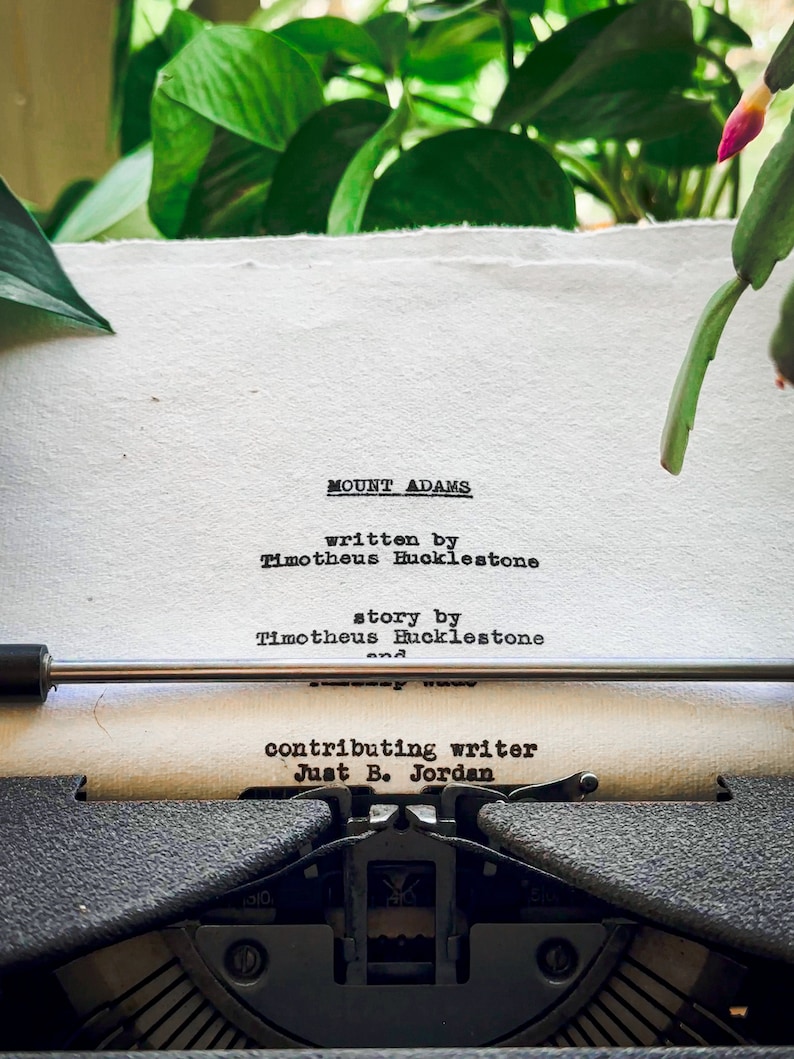 MOUNT ADAMS
written by
Timotheus Hucklestone
story by
Timotheus Hucklestone
and
contributing writer
Just B. Jordan